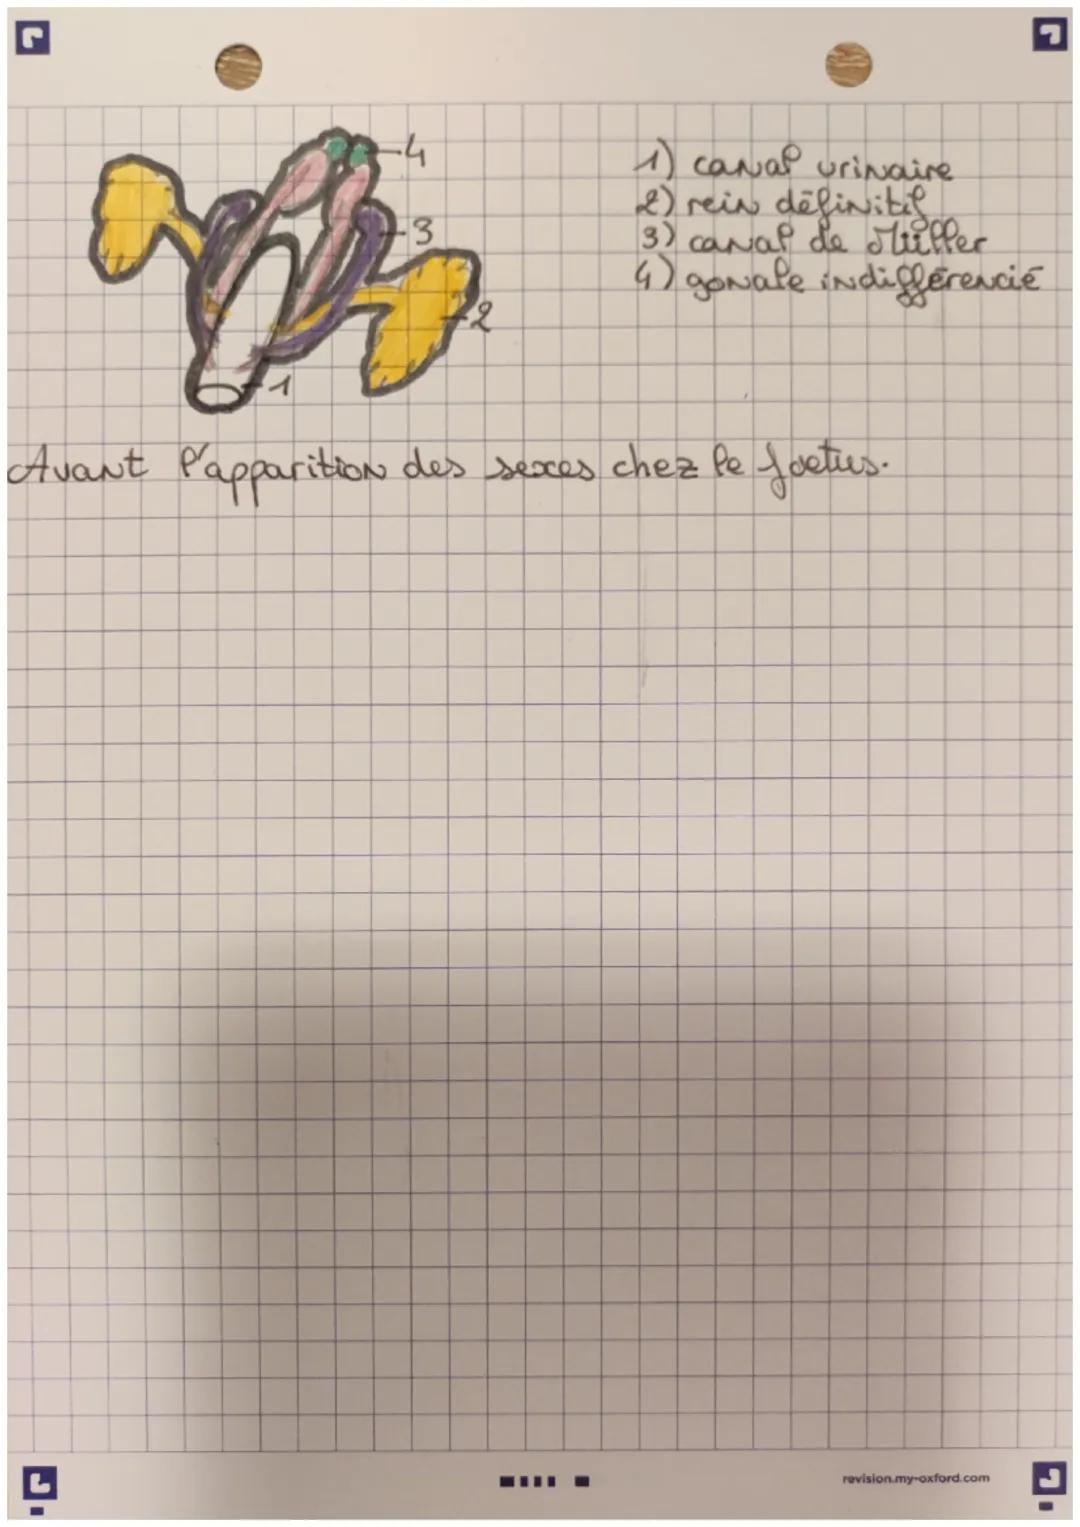 4
3
2
1
1) canal urinaire
2) rein définitif
3) canal de Müller
4) gonale indifférencié
Avant l'apparition des sexes chez le foetus.
revision.my-oxford.com